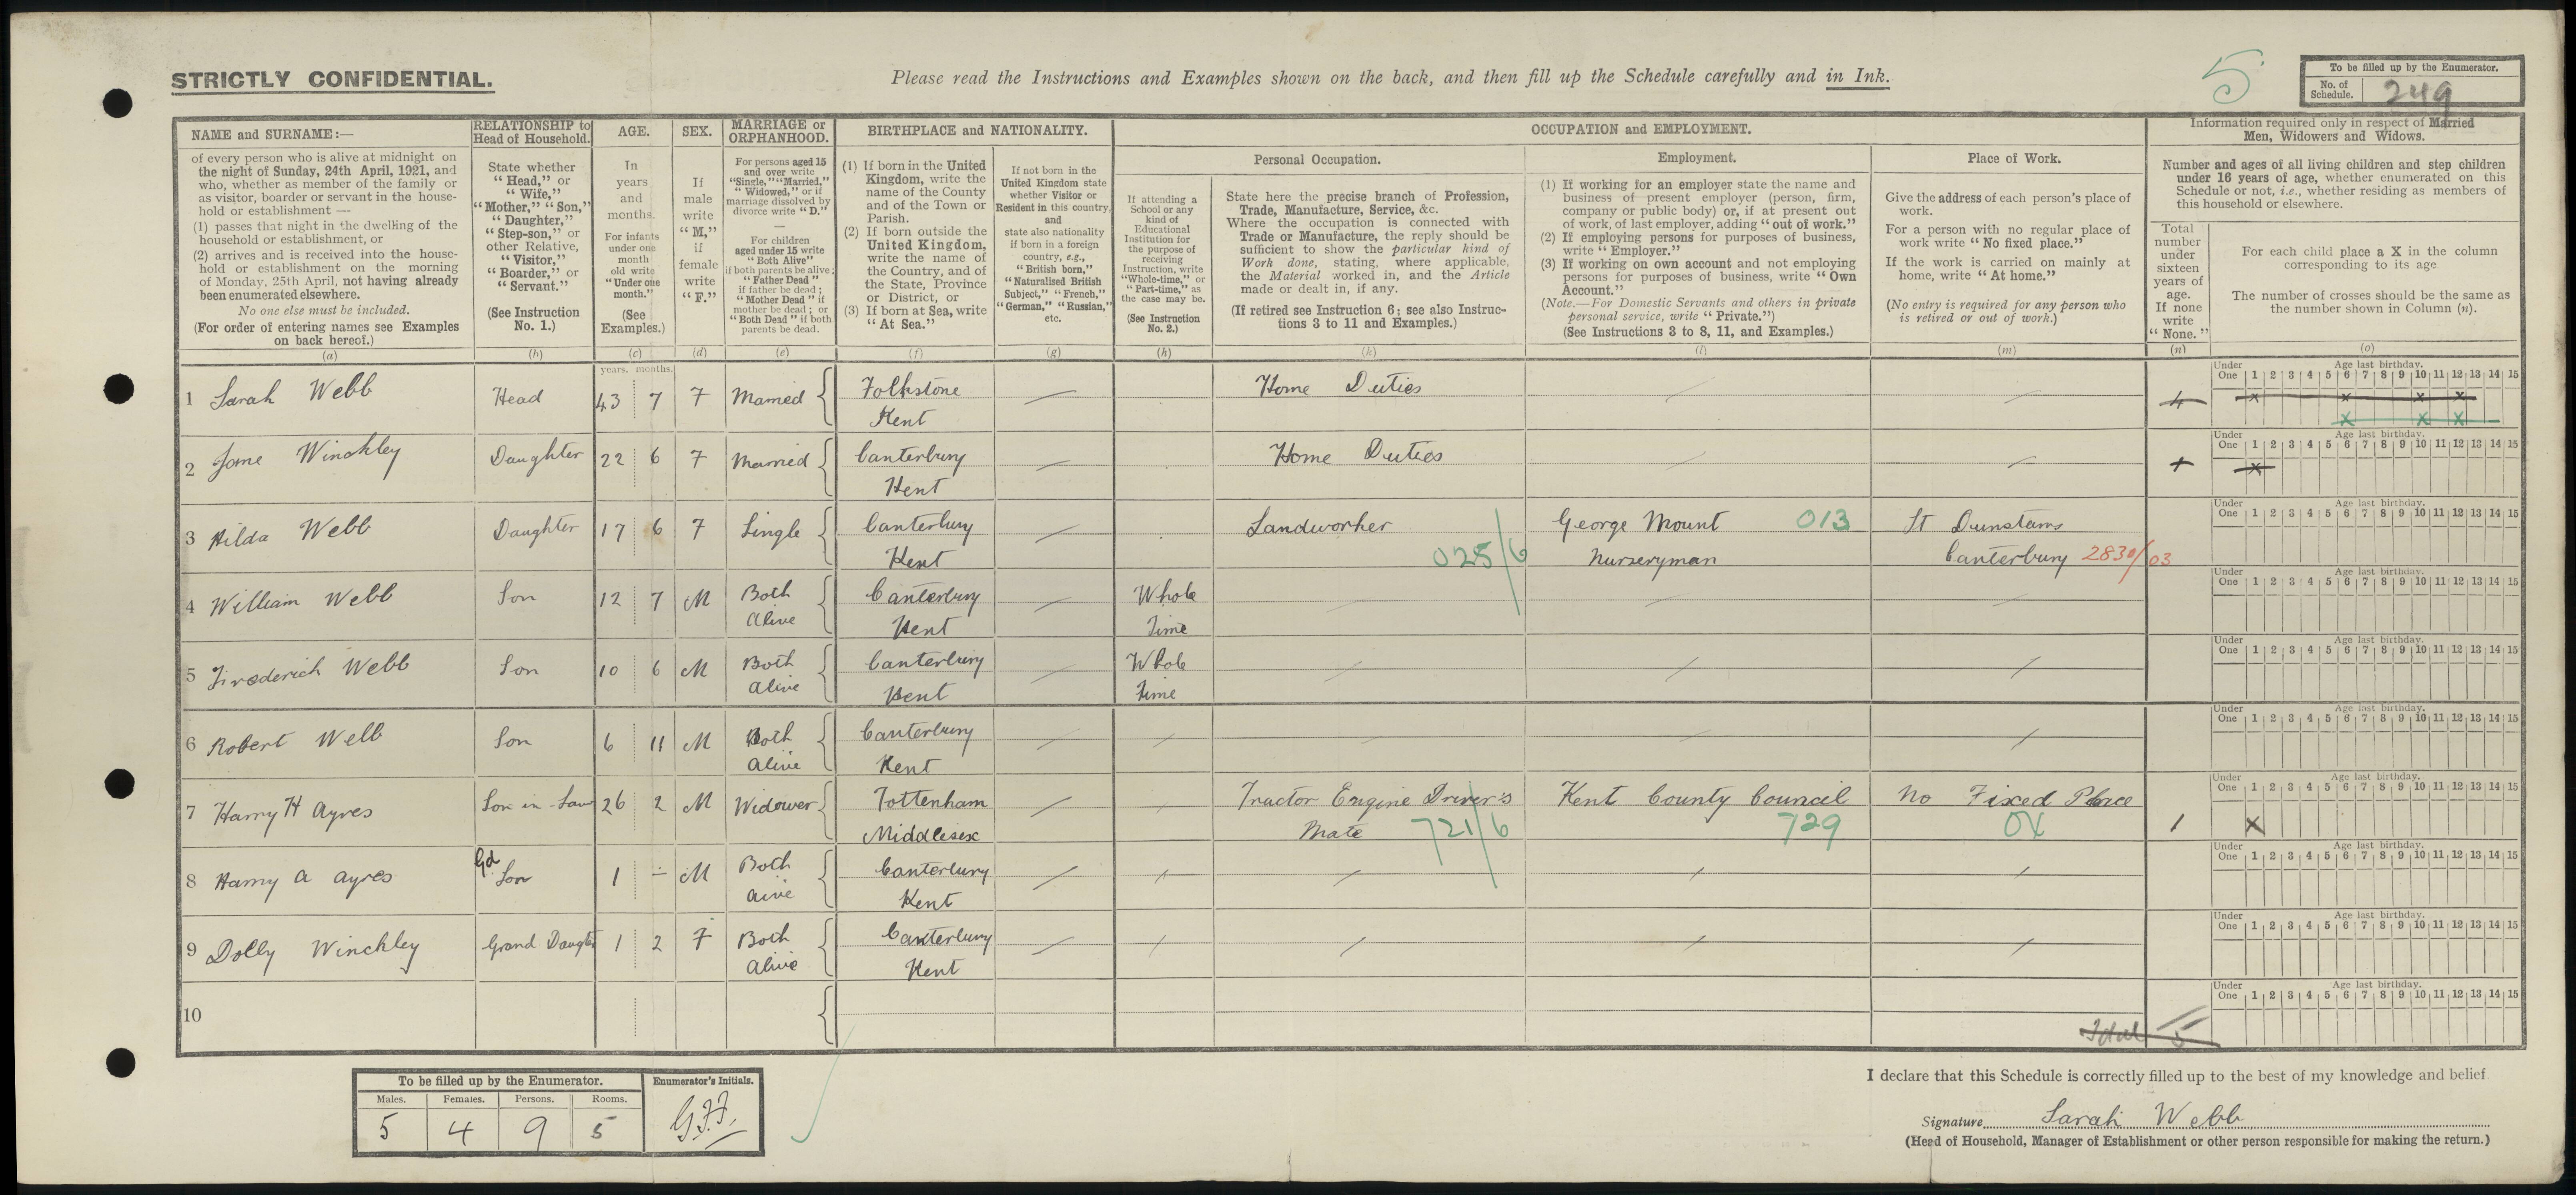 STRICTLY CONFIDENTIAL.
Please read the Instructions and Examples shown on the back, and then fill up the Schedule carefully and in Ink.
5
To be filled up by the Enumerator.
No. of Schedule. 249
NAME and SURNAME:—
of every person who is alive at midnight on
the night of Sunday, 24th April, 1921, and
who, whether as member of the family or
as visitor, boarder or servant in the house-
hold or establishment —
(1) passes that night in the dwelling of the
household or establishment, or
(2) arrives and is received into the house-
hold or establishment on the morning
of Monday, 25th April, not having already
been enumerated elsewhere.
No one else must be included.
(For order of entering names see Examples
on back hereof.)
(a)
RELATIONSHIP to
Head of Household.
State whether
"Head," or
"Wife,"
"Mother," "Son,"
"Daughter,"
"Step-son," or
other Relative,
"Visitor,"
"Boarder," or
"Servant."
(See Instruction
No. 1.)
(b)
AGE.
In
years
and
months.
For infants
under one
month
old write
"Under one
month."
(See
Examples.)
(c)
SEX.
If
male
write
"M,"
if
female
write
"F."
(d)
MARRIAGE or
ORPHANHOOD.
For persons aged 15
and over write
"Single," "Married,"
"Widowed," or if
marriage dissolved by
divorce write "D."
—
For children
aged under 15 write
"Both Alive"
if both parents be alive;
"Father Dead"
if father be dead;
"Mother Dead" if
mother be dead; or
"Both Dead" if both
parents be dead.
(e)
BIRTHPLACE and NATIONALITY.
(1) If born in the United
Kingdom, write the
name of the County
and of the Town or
Parish.
(2) If born outside the
United Kingdom,
write the name of
the Country, and of
the State, Province
or District, or
(3) If born at Sea, write
"At Sea."
(f)
If not born in the
United Kingdom state
whether Visitor or
Resident in this country,
and
state also nationality
if born in a foreign
country, e.g.,
"British born,"
"Naturalised British
Subject," "French,"
"German," "Russian,"
etc.
(g)
OCCUPATION and EMPLOYMENT.
If attending a
School or any
kind of
Educational
Institution for
the purpose of
receiving
Instruction, write
"Whole-time," or
"Part-time," as
the case may be.
(See Instruction
No. 2.)
(h)
Personal Occupation.
State here the precise branch of Profession,
Trade, Manufacture, Service, &c.
Where the occupation is connected with
Trade or Manufacture, the reply should be
sufficient to show the particular kind of
Work done, stating, where applicable,
the Material worked in, and the Article
made or dealt in, if any.
(If retired see Instruction 6; see also Instruc-
tions 3 to 11 and Examples.)
(k)
Employment.
(1) If working for an employer state the name and
business of present employer (person, firm,
company or public body) or, if at present out
of work, of last employer, adding "out of work."
(2) If employing persons for purposes of business,
write "Employer."
(3) If working on own account and not employing
persons for purposes of business, write "Own
Account."
(Note.—For Domestic Servants and others in private
personal service, write "Private.")
(See Instructions 3 to 8, 11, and Examples.)
(l)
Place of Work.
Give the address of each person's place of
work.
For a person with no regular place of
work write "No fixed place."
If the work is carried on mainly at
home, write "At home."
(No entry is required for any person who
is retired or out of work.)
(m)
Information required only in respect of Married
Men, Widowers and Widows.
Number and ages of all living children and step children
under 16 years of age, whether enumerated on this
Schedule or not, i.e., whether residing as members of
this household or elsewhere.
Total
number
under
sixteen
years of
age.
If none
write
"None."
(n)
For each child place a X in the column
corresponding to its age
The number of crosses should be the same as
the number shown in Column (n).
(o)
years. months.
Under One Age last birthday. 1 2 3 4 5 6 7 8 9 10 11 12 13 14 15
1 Sarah Webb Head 43 7 F Married Folkstone Kent Home Duties 4 x x x x
x x x
Under One Age last birthday. 1 2 3 4 5 6 7 8 9 10 11 12 13 14 15
2 Jame Winchley Daughter 22 6 F Married Canterbury Kent Home Duties 1 x
Under One Age last birthday. 1 2 3 4 5 6 7 8 9 10 11 12 13 14 15
3 Hilda Webb Daughter 17 6 F Single Canterbury Kent Landworker 025/6 George Mount 013 Nurseryman St Dunstans Canterbury 2830/03
Under One Age last birthday. 1 2 3 4 5 6 7 8 9 10 11 12 13 14 15
4 William Webb Son 12 7 M Both Alive Canterbury Kent Whole Time
Under One Age last birthday. 1 2 3 4 5 6 7 8 9 10 11 12 13 14 15
5 Firederick Webb Son 10 6 M Both Alive Canterbury Kent Whole Time
Under One Age last birthday. 1 2 3 4 5 6 7 8 9 10 11 12 13 14 15
6 Robert Webb Son 6 11 M Both Alive Canterbury Kent
Under One Age last birthday. 1 2 3 4 5 6 7 8 9 10 11 12 13 14 15
7 Harry H Ayres Son in Law 26 2 M Widower Tottenham Middlesex Tractor Engine Driver's Mate 721/6 Kent County Council 729 No Fixed Place OX 1 X
Under One Age last birthday. 1 2 3 4 5 6 7 8 9 10 11 12 13 14 15
8 Harry A Ayres Gd Son 1 – M Both Aive Canterbury Kent
Under One Age last birthday. 1 2 3 4 5 6 7 8 9 10 11 12 13 14 15
9 Dolly Winchley Grand Daughter 1 2 F Both Alive Canterbury Kent
Under One Age last birthday. 1 2 3 4 5 6 7 8 9 10 11 12 13 14 15
10
Total 5
To be filled up by the Enumerator.
Males. Females. Persons. Rooms.
5 4 9 5
Enumerator's Initials.
G.F.F.
I declare that this Schedule is correctly filled up to the best of my knowledge and belief.
Signature Sarah Webb
(Head of Household, Manager of Establishment or other person responsible for making the return.)